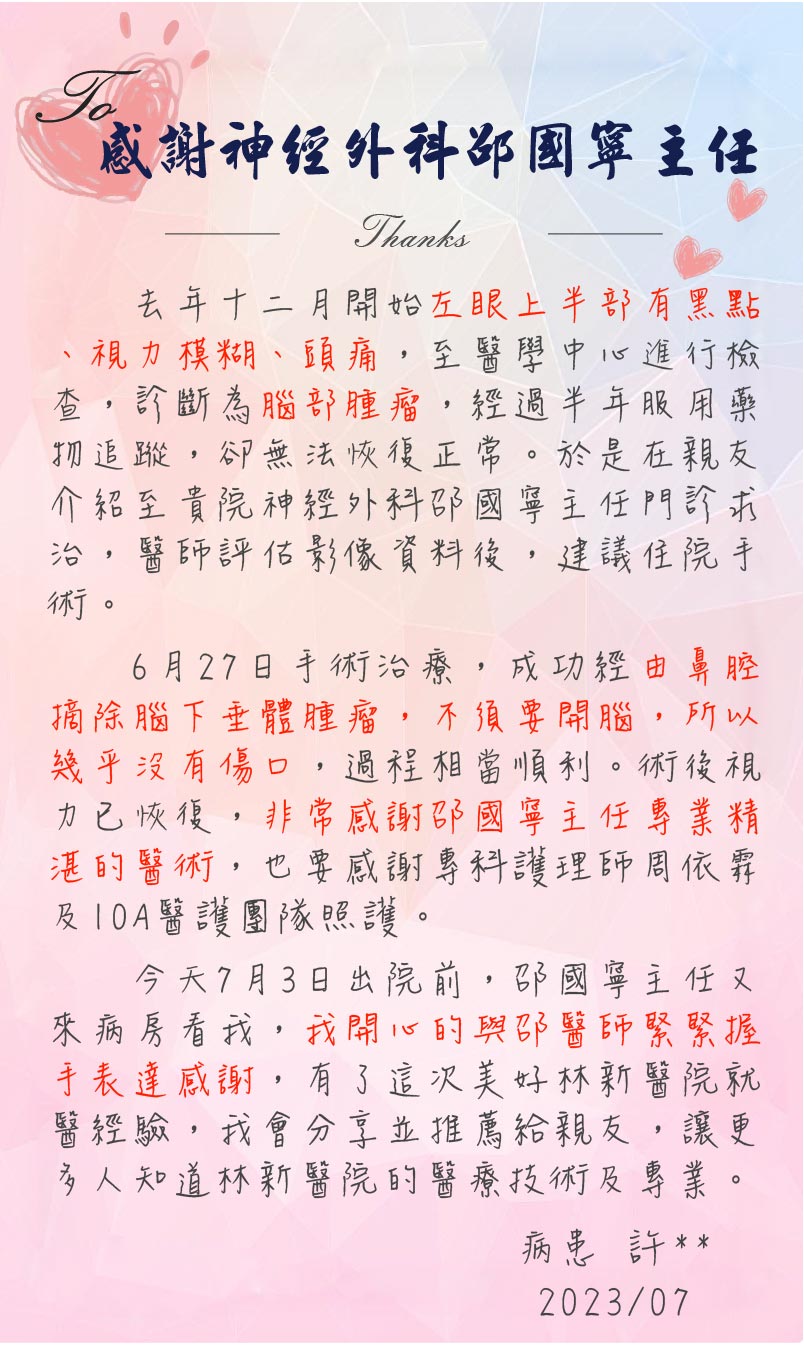 To
感謝神經外科邵國寧主任
Thanks
去年十二月開始左眼上半部有黑點
、視力模糊、頭痛，至醫學中心進行檢
查，診斷為腦部腫瘤，經過半年服用藥
物追蹤，卻無法恢復正常。於是在親友
介紹至貴院神經外科邵國寧主任門診求
治，醫師評估影像資料後，建議住院手
術。
6月27日手術治療，成功經由鼻腔
摘除腦下垂體腫瘤，不須要開腦，所以
幾乎沒有傷口，過程相當順利。術後視
力已恢復，非常感謝邵國寧主任專業精
湛的醫術，也要感謝專科護理師周依霖
及10A醫護團隊照護。
今天7月3日出院前，邵國寧主任又
來病房看我，我開心的與邵醫師緊緊握
手表達感謝，有了這次美好林新醫院就
醫經驗，我會分享並推薦給親友，讓更
多人知道林新醫院的醫療技術及專業。
病患 許**
2023/07